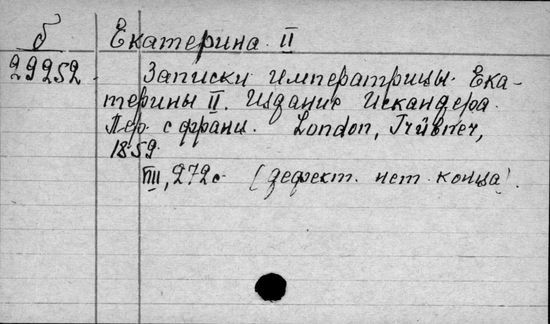 б
29252
Екатерина II
Записки императрицы Ека-
терины II. Издание Искандера.
Пер. с франц. London, Trübner,
1859.
VIII, 272 с. (дефект. нет конца).